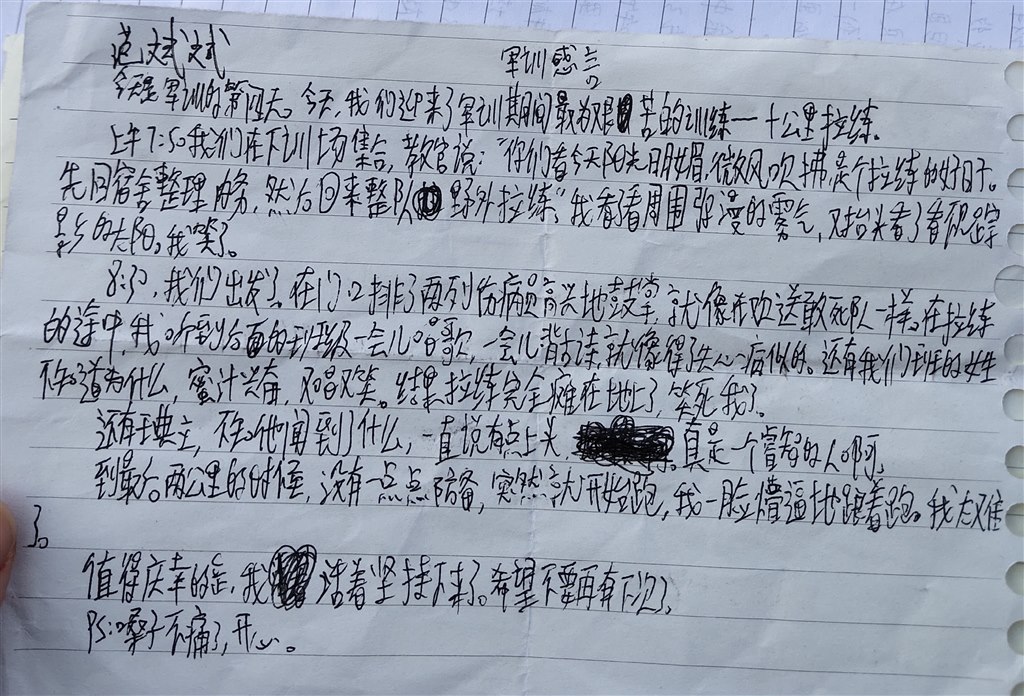 范斌斌
军训感言
今天是军训的第四天。今天,我们迎来了军训期间最为艰苦的训练一十公里拉练。
上午7:50我们在下训场集合,教官说:“你们看今天阳光明媚,微风吹拂,是个拉练的好日子。
先回宿舍整理内务,然后回来整队野外拉练”我看了看周围弥漫的雾气,又抬头看了看没踪
影的太阳。我笑了。
8:30,我们出发了。在门口排了两列伤病员高兴地鼓掌,就像在欢送敢死队一样。在拉练
的途中,我听到后面的班级一会儿唱歌,一会儿背诗读,就像得了失心病似的。还有我们班的女生
不知道为什么,蜜汁兴奋,又唱又笑。结果拉练完全瘫在地上了,笑死我了。
还有,不知他闻到了什么,一直说有点上头 真是一个睿智的人啊。
到最后两公里的时候,没有一点点防备,突然就开始跑,我一脸懵逼地跟着跑。我太难
了。
值得庆幸的是,我活着坚持下来了。希望不要再有下次了。
PS:嗓子不痛了,开心。